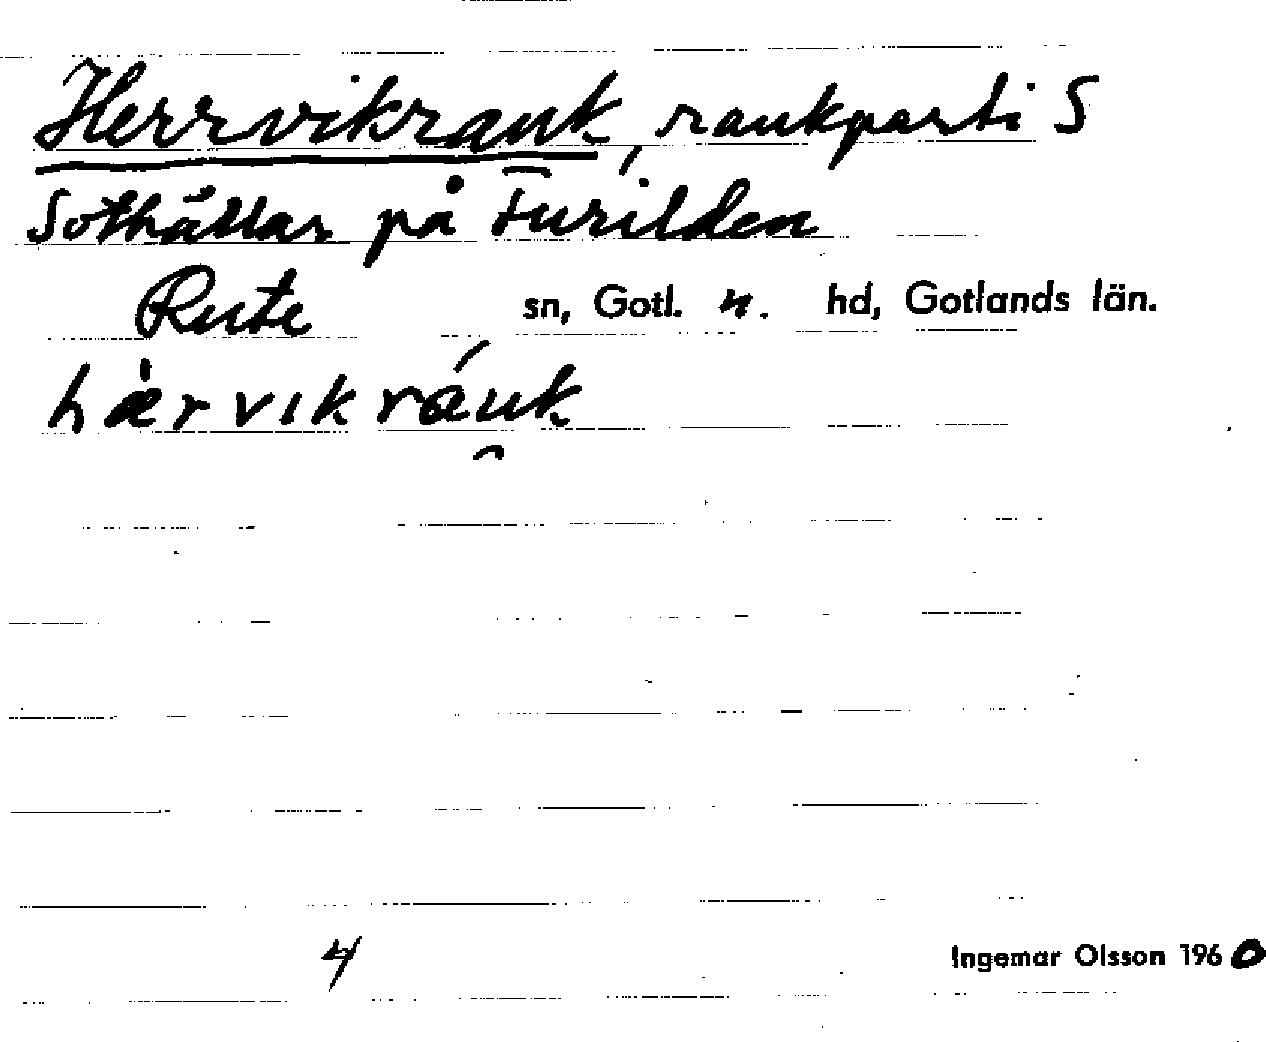 Herrvikrauk, raukparti S
Sothällar på Furilden
Rute sn, Gotl. n. hd, Gotlands län.
hærvıkræuk
4 Ingemar Olsson 1960